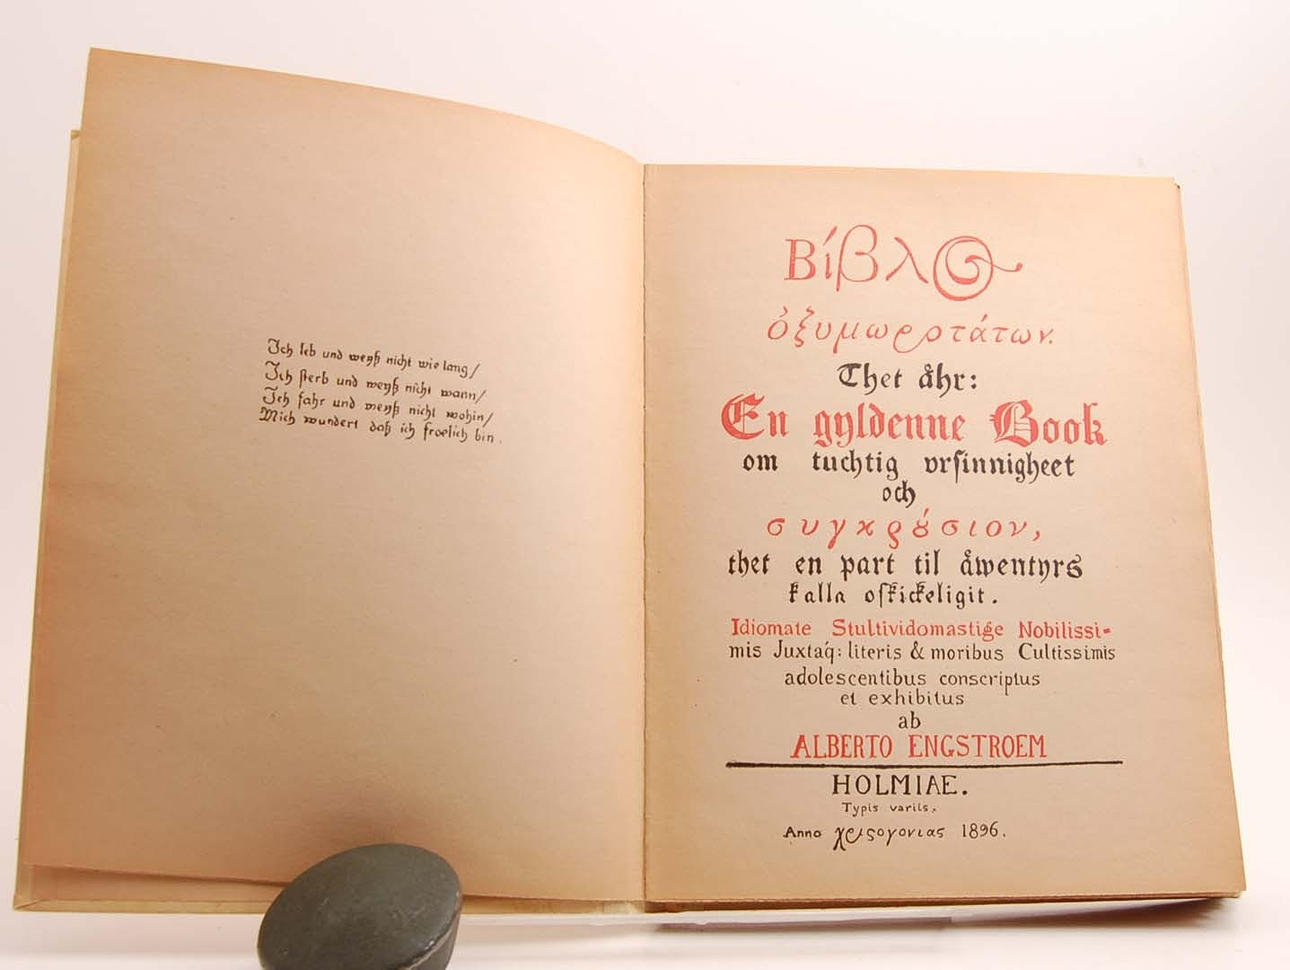 Ich leb und weyß nicht wie lang/
Ich sterb und weyß nicht wann/
Ich fahr und weyß nicht wohin/
Mich wundert daß ich froelich bin.
Βίβλος
ὀξυμωροτάτων.
Thet åhr:
En gyldenne Book
om tuchtig vrsinnigheet
och
συγκρȣ́σιον,
thet en part til åwentyrs
kalla oskickeligit.
Idiomate Stultividomastige Nobilissi-
mis Juxtaq́: literis & moribus Cultissimis
adolescentibus conscriptus
et exhibitus
ab
ALBERTO ENGSTROEM
HOLMIAE.
Typis variis,
Anno χριςογονιας 1896.